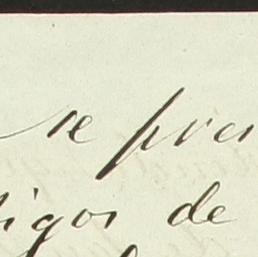 se pres
tigos de